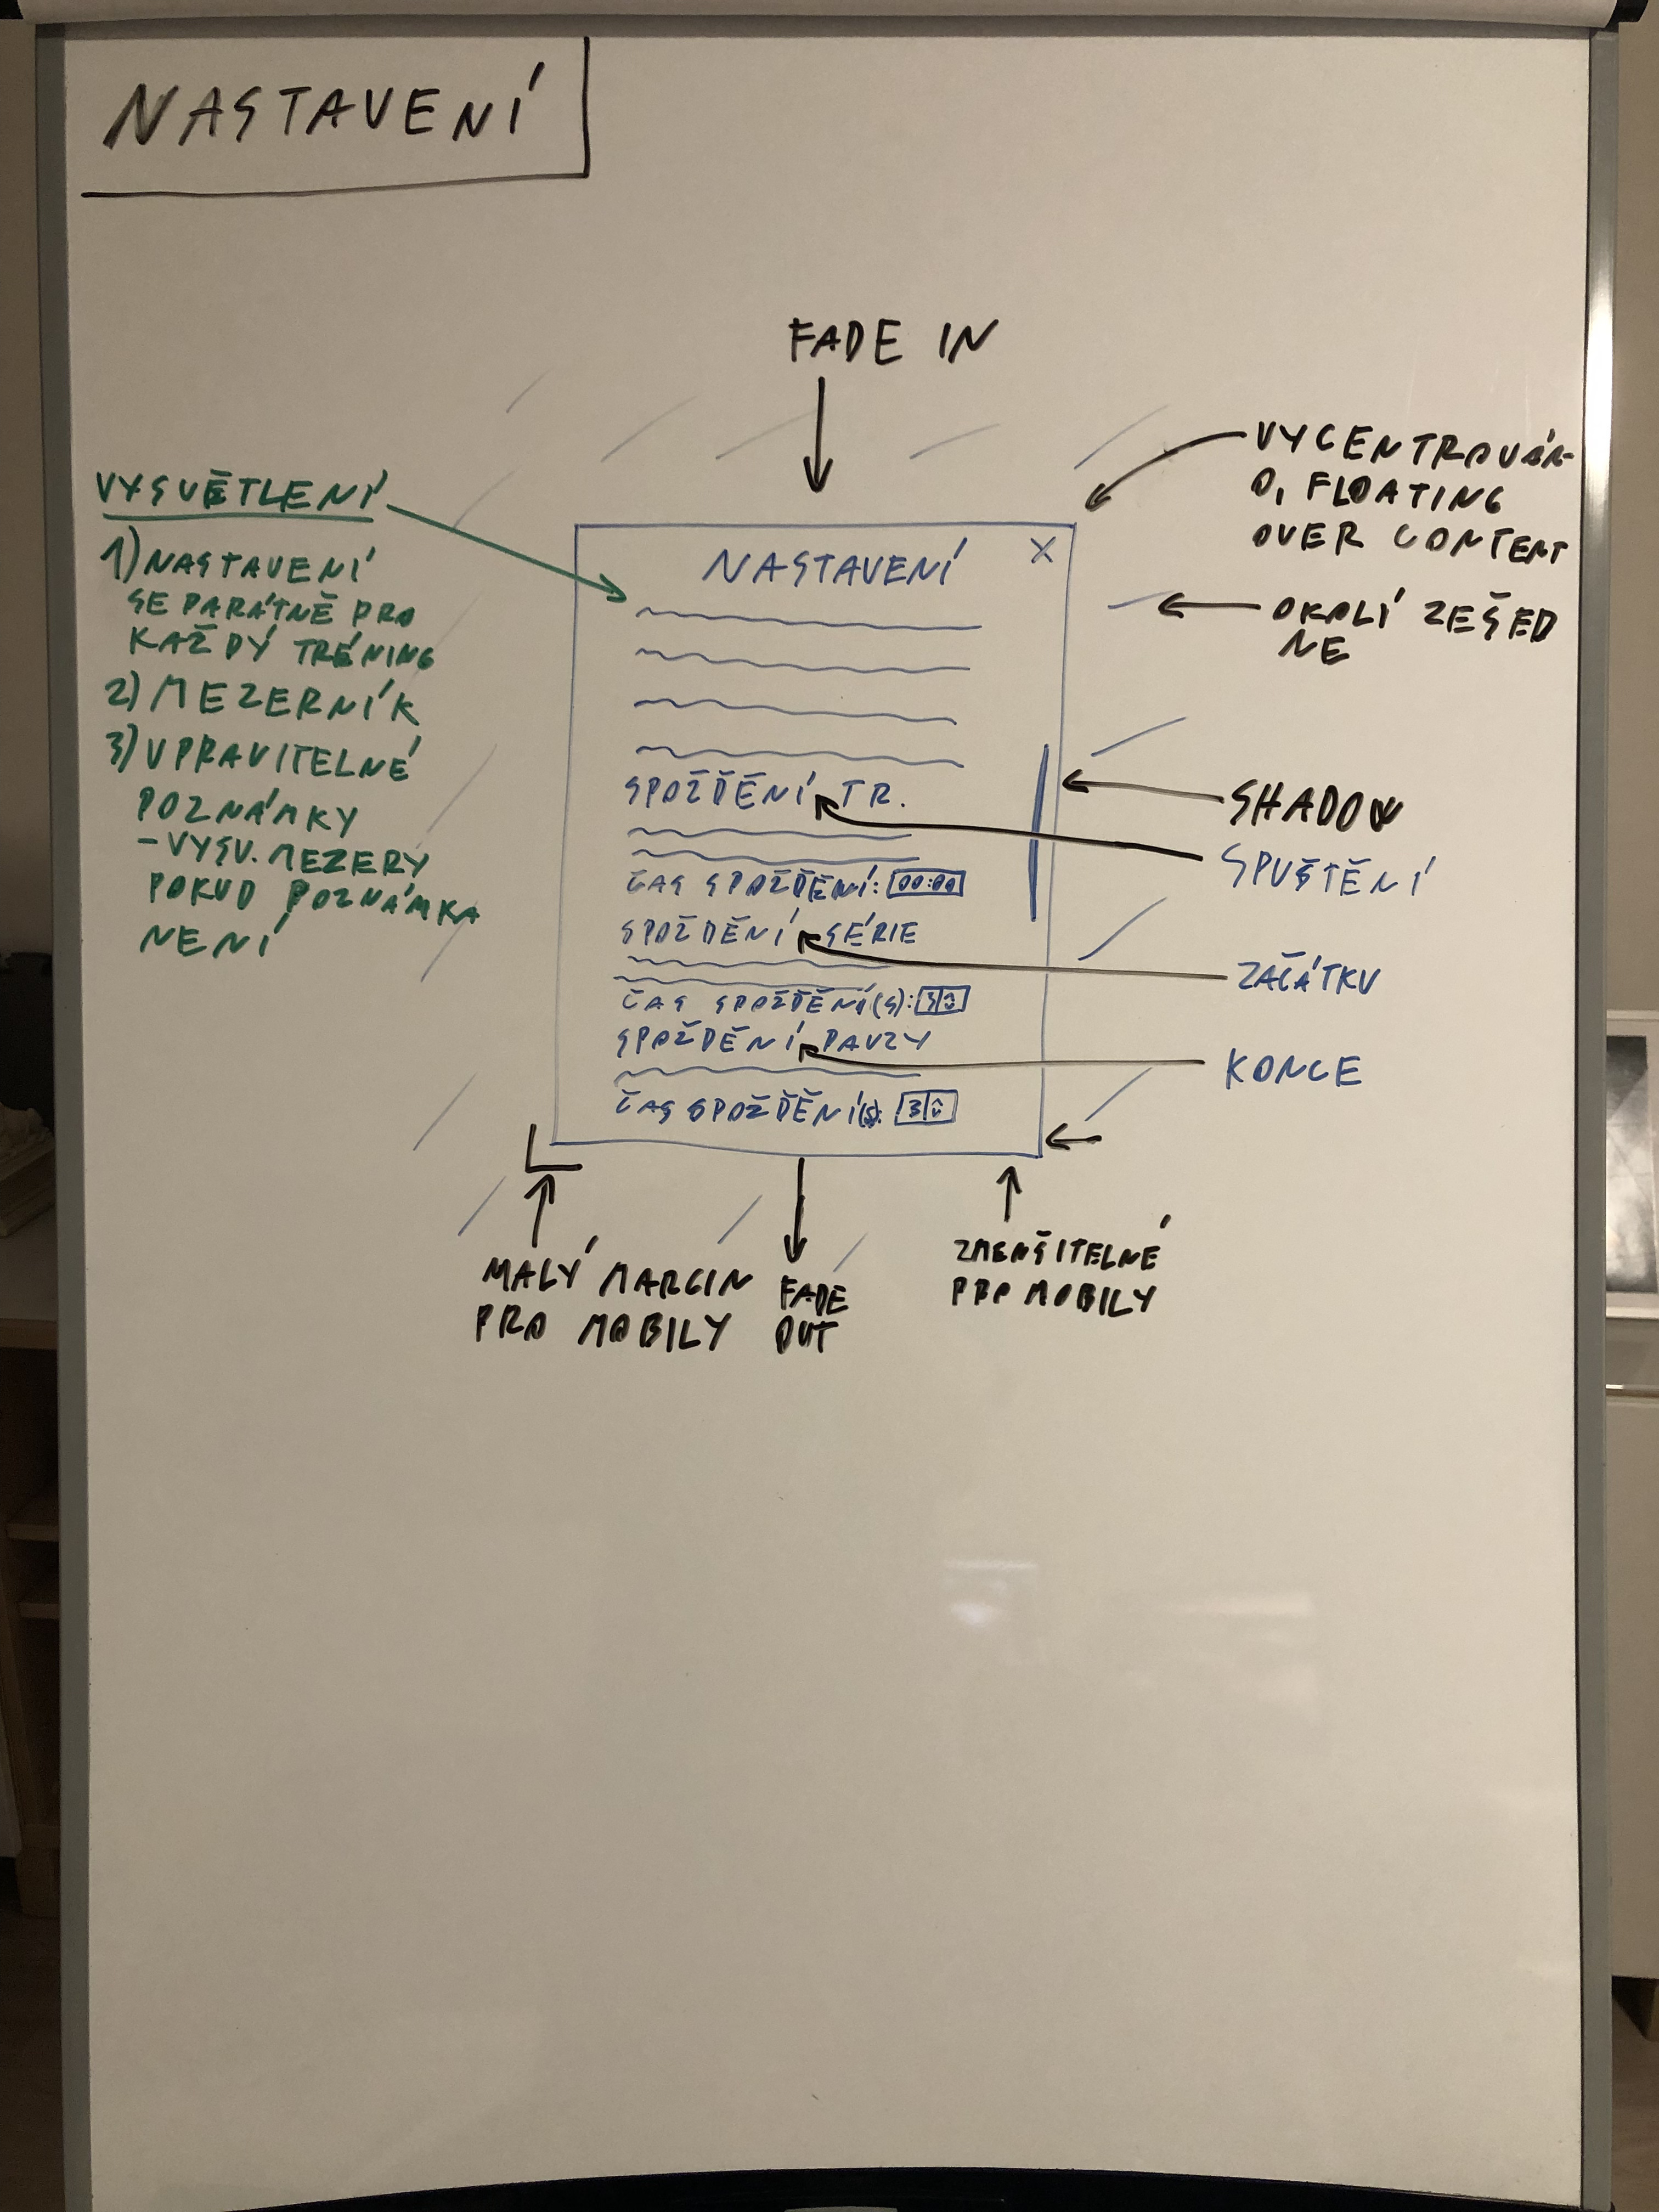 NASTAVENÍ
FADE IN
VYCENTROVÁN-
O, FLOATING
OVER CONTENT
VYSVĚTLENÍ
1) NASTAVENÍ
SEPARÁTNĚ PRO
KAŽDÝ TRÉNING
2) MEZERNÍK
3) UPRAVITELNÉ
POZNÁMKY
- VYSV. MEZERY
POKUD POZNÁMKA
NENÍ
NASTAVENÍ X
SPOŽDĚNÍ TR.
ČAS SPOŽDĚNÍ: 00:00
SPOŽDĚNÍ SÉRIE
ČAS SPOŽDĚNÍ(S): 3
SPOŽDĚNÍ PAUZY
ČAS SPOŽDĚNÍ(S): 3
OKOLÍ ZEŠED
NE
SHADOW
SPUŠTĚNÍ
ZAČÁTKU
KONCE
MALÝ MARGIN
PRO MOBILY
FADE
OUT
ZMENŠITELNÉ
PRO MOBILY